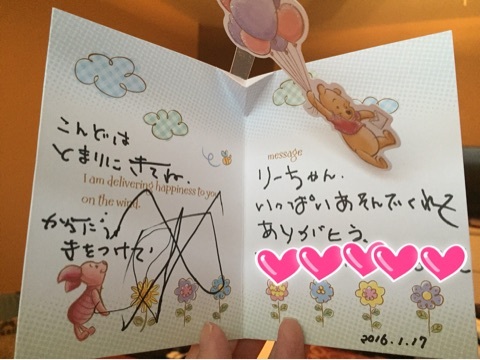 こんどは
とまりに きてね。
I am delivering happiness to you
on the wind.
きをつけて
message
りーちゃん.
いっぱいあそんでくれて
ありがとう。
2016.1.17